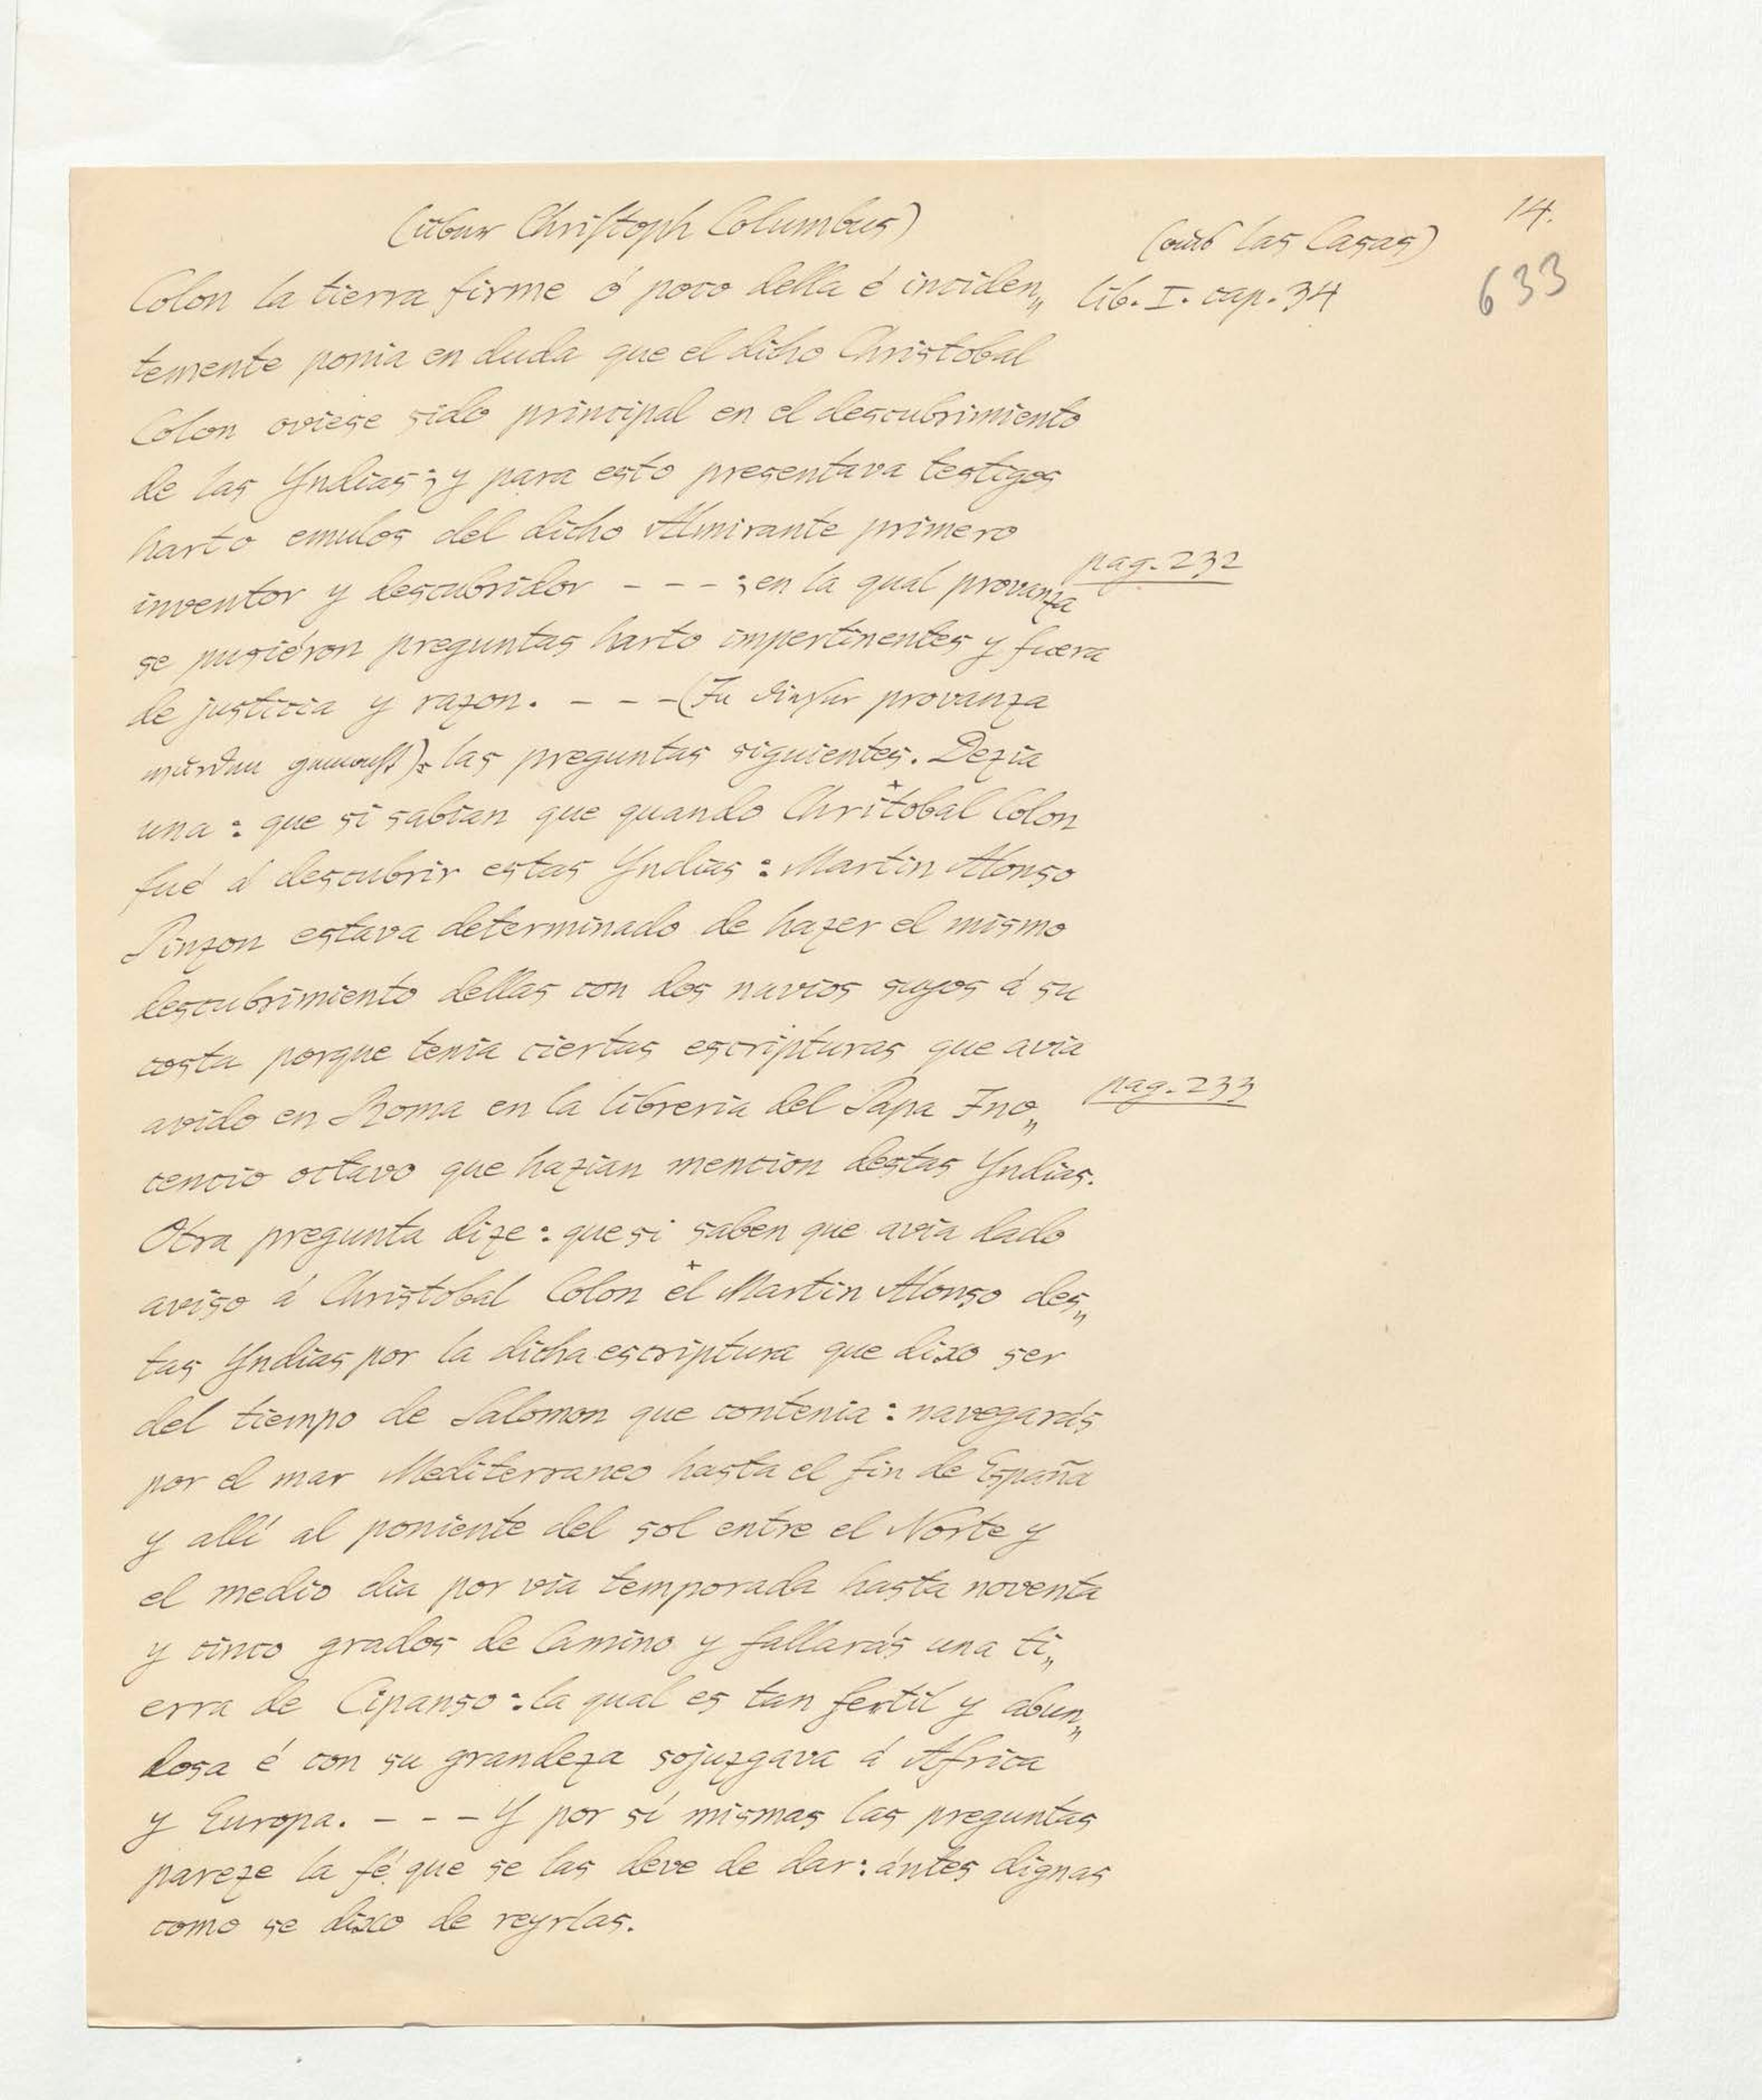 14.
(über Christoph Columbus)
(aus las Casas)
633
Colon la tierra firme ó poco della é inciden„
lib. I. cap. 34
temente ponia en duda que el dicho Christobal
Colon oviese sido principal en el descubrimiento
de las Yndias; y para esto presentava testigos
harto emulos del dicho Almirante primero
pag. 232
inventor y descubridor - - - ; en la qual provanza
se pusiéron preguntas harto impertinentes y fuera
de justicia y razon. - - - (Zu dieser provanza
wurden gemacht): las preguntas siguientes. Dezia
una: que si sabian que quando Chritobal Colon
fué á descubrir estas Yndias: Martin Alonso
Pinzon estava determinado de hazer el mismo
descubrimiento dellas con dos navios suyos á su
costa porque tenia ciertas escripturas que avia
pag. 233
avido en Roma en la libreria del Papa Ino„
cencio octavo que hazian mencion destas Yndias.
Otra pregunta dize: que si saben que avia dado
aviso á Christobal Colon el Martin Alonso des„
tas Yndias por la dicha escriptura que dixo ser
del tiempo de Salomon que contenia: navegarás
por el mar Mediterraneo hasta el fin de España
y allí al poniente del sol entre el Norte y
el medio dia por via temporada hasta noventa
y cinco grados de Camino y fallarás una ti„
erra de Cipanso: la qual es tan fertil y abun„
dosa é con su grandeza sojuzgava á Africa
y Europa. - - - Y por sí mismas las preguntas
pareze la fé que se las deve de dar: ántes dignas
como se dixo de reyrlas.